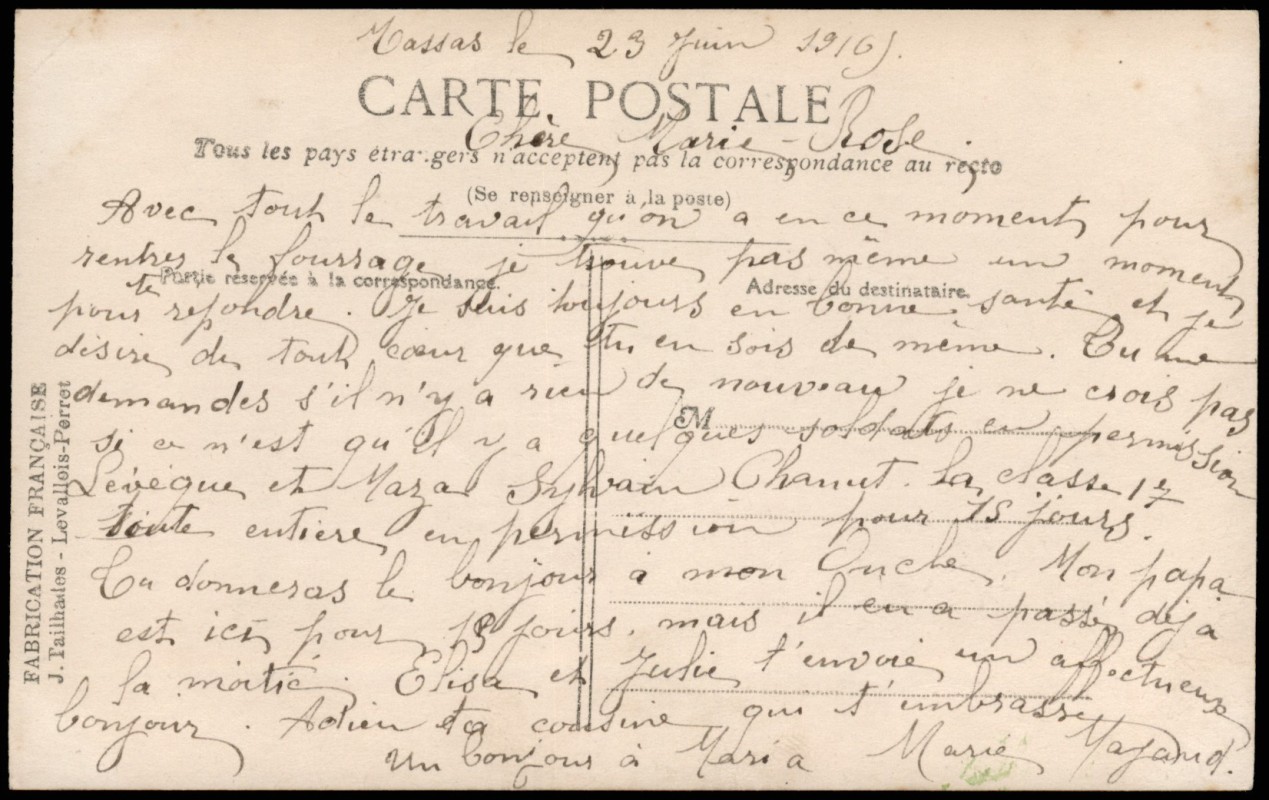 Tassas le 23 Juin 1916.
CARTE POSTALE
Chère Marie-Rose.
Tous les pays étrangers n'acceptent pas la correspondance au recto
(Se renseigner à la poste)
Avec tout le travail qu'on a en ce moment pour
rentrer le fourrage je trouve pas même un moment
Partie réservée à la correspondance.
Adresse du destinataire.
pour te repondre. Je suis toujours en bonne santé et je
désire de tout cœur que tu en sois de même. Tu me
demandes s'il n'y a rien de nouveau je ne crois pas
M
si ce n'est qu'il y a quelques soldats en permission
Lévéque et Maza Sylvain Chanut. la classe 17
toute entiere en permission pour 15 jours.
Tu donneras le bonjour a mon Oncle. Mon papa
est ici pour jours, mais il en a passé déja
la moitié. Elisa et Julie t'envoie un affectueux
bonjour. Adieu ta cousine qui t'embrasse
Un bonjour à Maria Marie
FABRICATION FRANÇAISE
J. Tailhades - Levallois-Perret